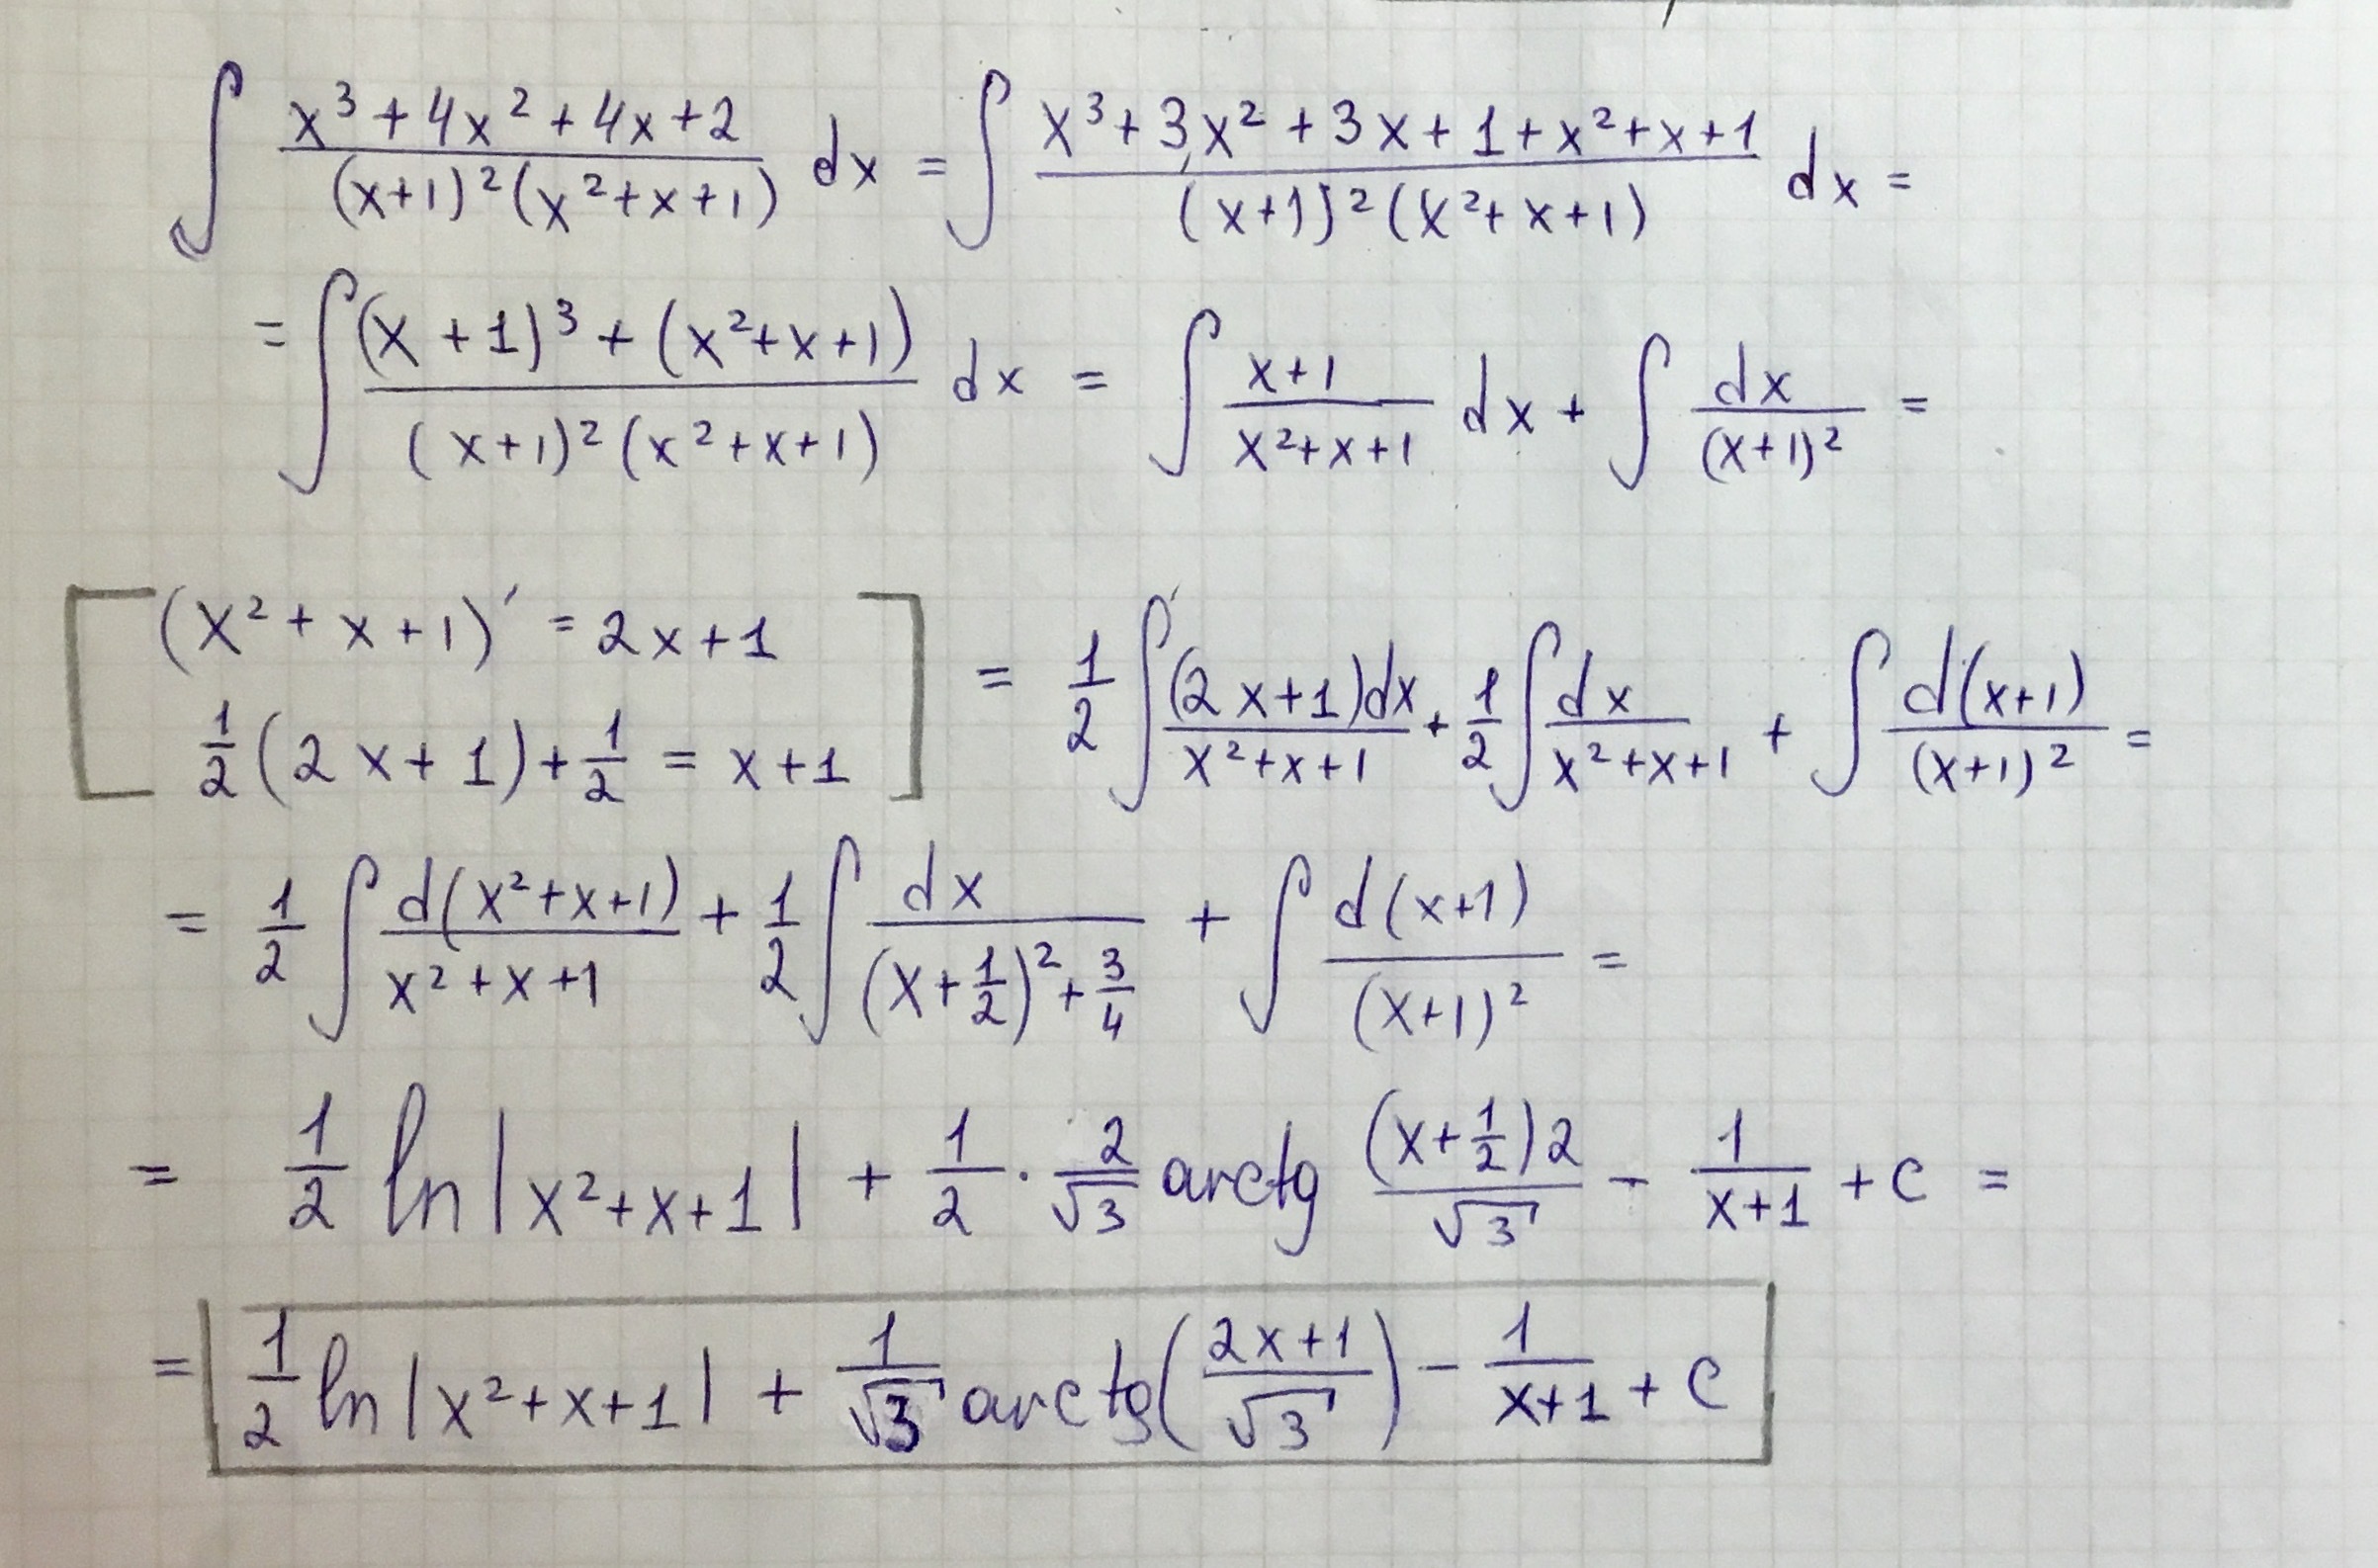 ∫ (x³+4x²+4x+2)/((x+1)²(x²+x+1)) dx = ∫ (x³+3x²+3x+1+x²+x+1)/((x+1)²(x²+x+1)) dx =
= ∫ ((x+1)³+(x²+x+1))/((x+1)²(x²+x+1)) dx = ∫ (x+1)/(x²+x+1) dx + ∫ dx/(x+1)² =
[(x²+x+1)′ = 2x+1
1/2(2x+1)+1/2 = x+1] = 1/2 ∫ (2x+1)dx/(x²+x+1) + 1/2 ∫ dx/(x²+x+1) + ∫ d(x+1)/(x+1)² =
= 1/2 ∫ d(x²+x+1)/(x²+x+1) + 1/2 ∫ dx/((x+1/2)²+3/4) + ∫ d(x+1)/(x+1)² =
= 1/2 ln|x²+x+1| + 1/2 · 2/√3 arctg ((x+1/2)2)/√3 - 1/(x+1) + c =
= 1/2 ln|x²+x+1| + 1/√3 arctg((2x+1)/√3) - 1/(x+1) + c